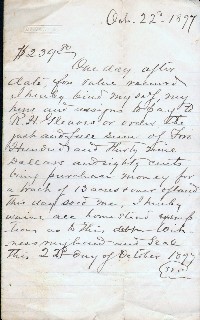 Oct. 22nd 1897
$239 80
One day after
date, for value received
I hereby bind my self, my
heirs and assigns to pay to
R. H. or order the
just and full sum of Two
Hundred and thirty nine
Dollars and eighty cents
being purchase money for
a tract of 13 acres land
this day sold me, I hereby
waive all homestead exemp
tions as to this, debt Wit-
ness my hand and Seal
this, 22nd day of October 1897
(seal)